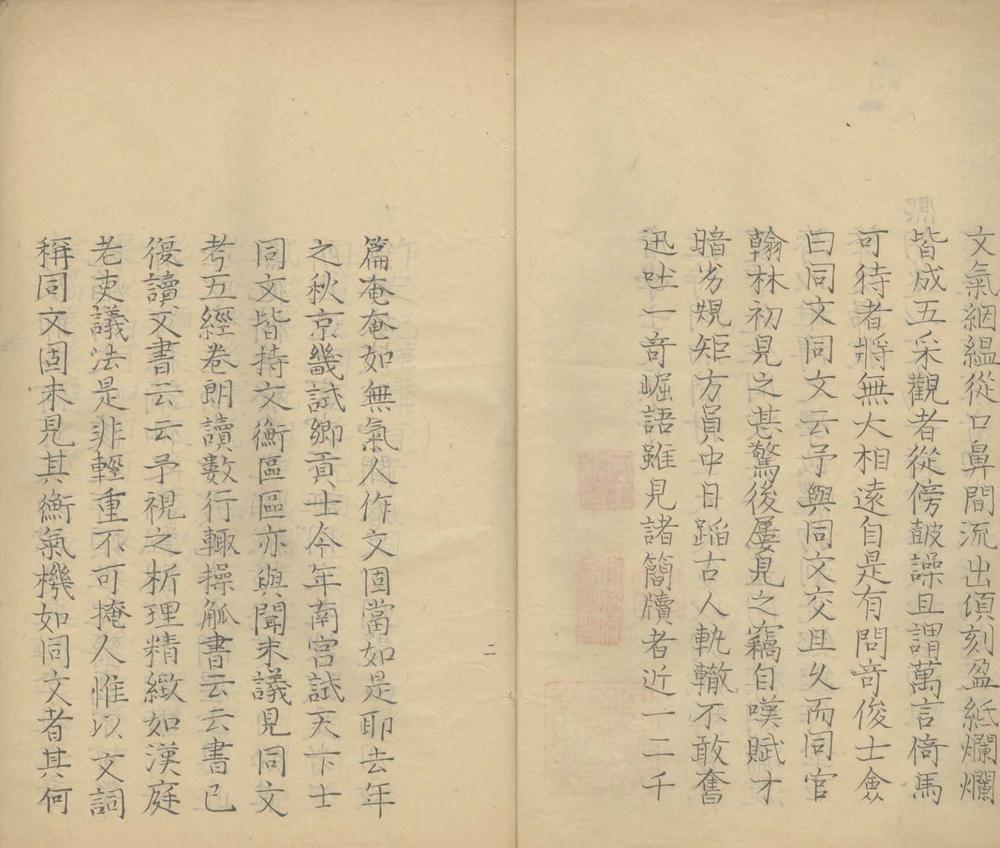 文氣絪縕從口鼻間流出傾刻盈紙爛爛
皆成五采觀者從傍皷譟且謂萬言倚馬
可待者將無大相遠自是有問竒俊士僉
曰同文同文云予與同文交且久而同官
翰林初見之甚驚後屢見之竊自嘆賦才
暗劣䂓矩方員中日蹈古人軌轍不敢奮
迅吐一竒崛語雖見諸簡牘者近一二千
篇奄奄如無氣人作文固當如是耶去年
之秋京畿試鄉貢士今年南宫試天下士
同文皆持文衡區區亦與聞末議見同文
考五經卷朗讀數行輙操觚書云云書已
復讀文書云云予視之析理精緻如漢庭
老吏議法是非輕重不可掩人惟以文詞
稱同文固未見其衡氣機如同文者其何
二